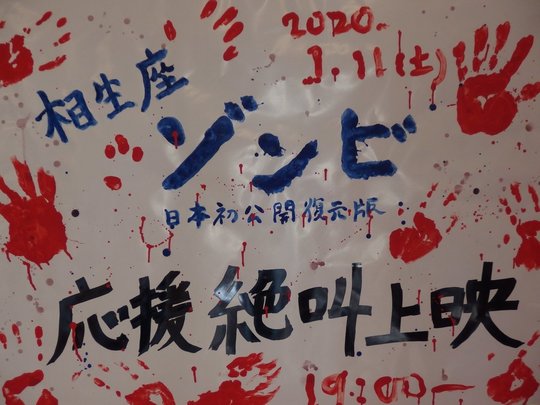 2020.
1.11(土)
相生座
ゾンビ
日本初公開復元版
応援絶叫上映
19:00〜